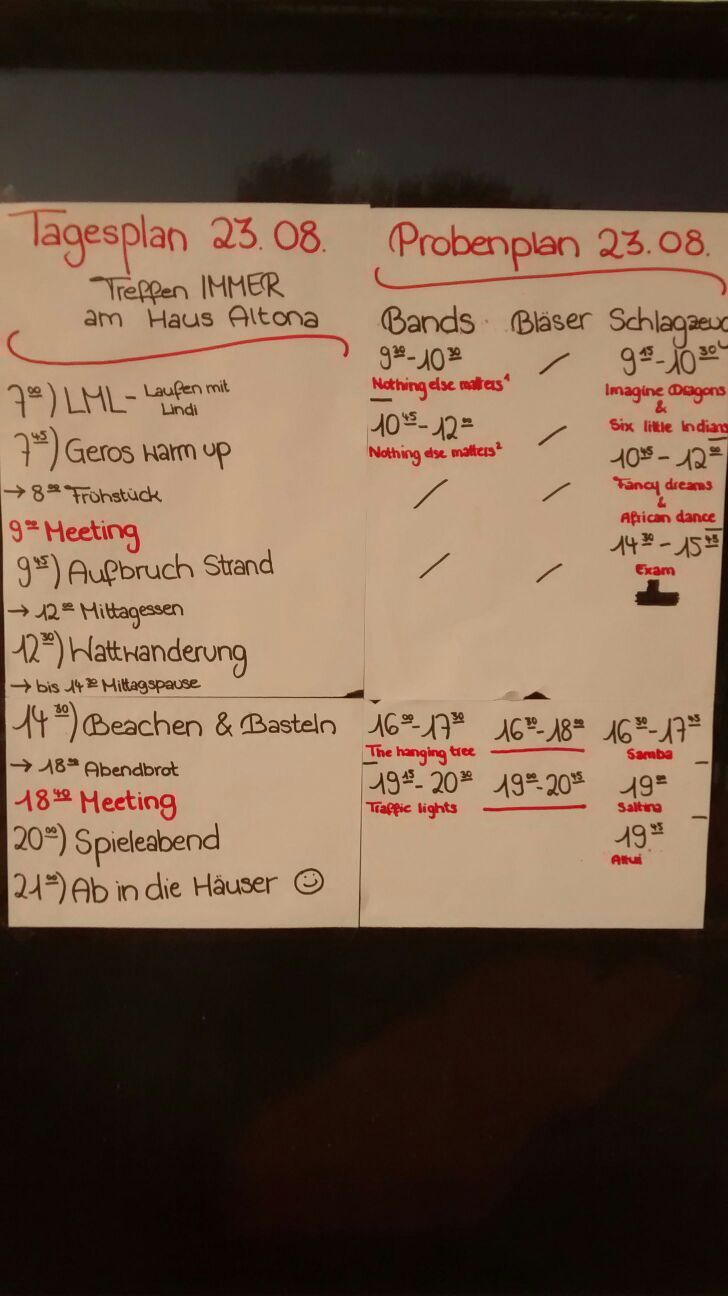 Tagesplan 23.08.
Treffen IMMER
am Haus Altona
7⁰⁰) LML- Laufen mit
Lindi
7⁴⁵) Geros warm up
→ 8⁰⁰ Frühstück
9⁰⁰ Meeting
9⁴⁵) Aufbruch Strand
→ 12⁰⁰ Mittagessen
12³⁰) Wattwanderung
→ bis 14³⁰ Mittagspause
14³⁰) Beachen & Basteln
→ 18⁰⁰ Abendbrot
18⁴⁰ Meeting
20⁰⁰) Spieleabend
21⁰⁰) Ab in die Häuser ☺
Probenplan 23.08.
Bands Bläser Schlagzeug
9³⁰-10³⁰ / 9¹⁵-10³⁰
Nothing else matters¹ Imagine Dragons
&
Six little Indians
10⁴⁵-12⁰⁰ / 10⁴⁵-12⁰⁰
Nothing else matters² Fancy dreams
&
African dance
/ / 14³⁰-15⁴⁵
/ / Exam
16⁰⁰-17³⁰ 16³⁰-18⁰⁰ 16³⁰-17⁴⁵
The hanging tree Samba
19¹⁵-20³⁰ 19⁰⁰-20⁴⁵ 19⁰⁰
Traffic lights Saltina
19⁴⁵